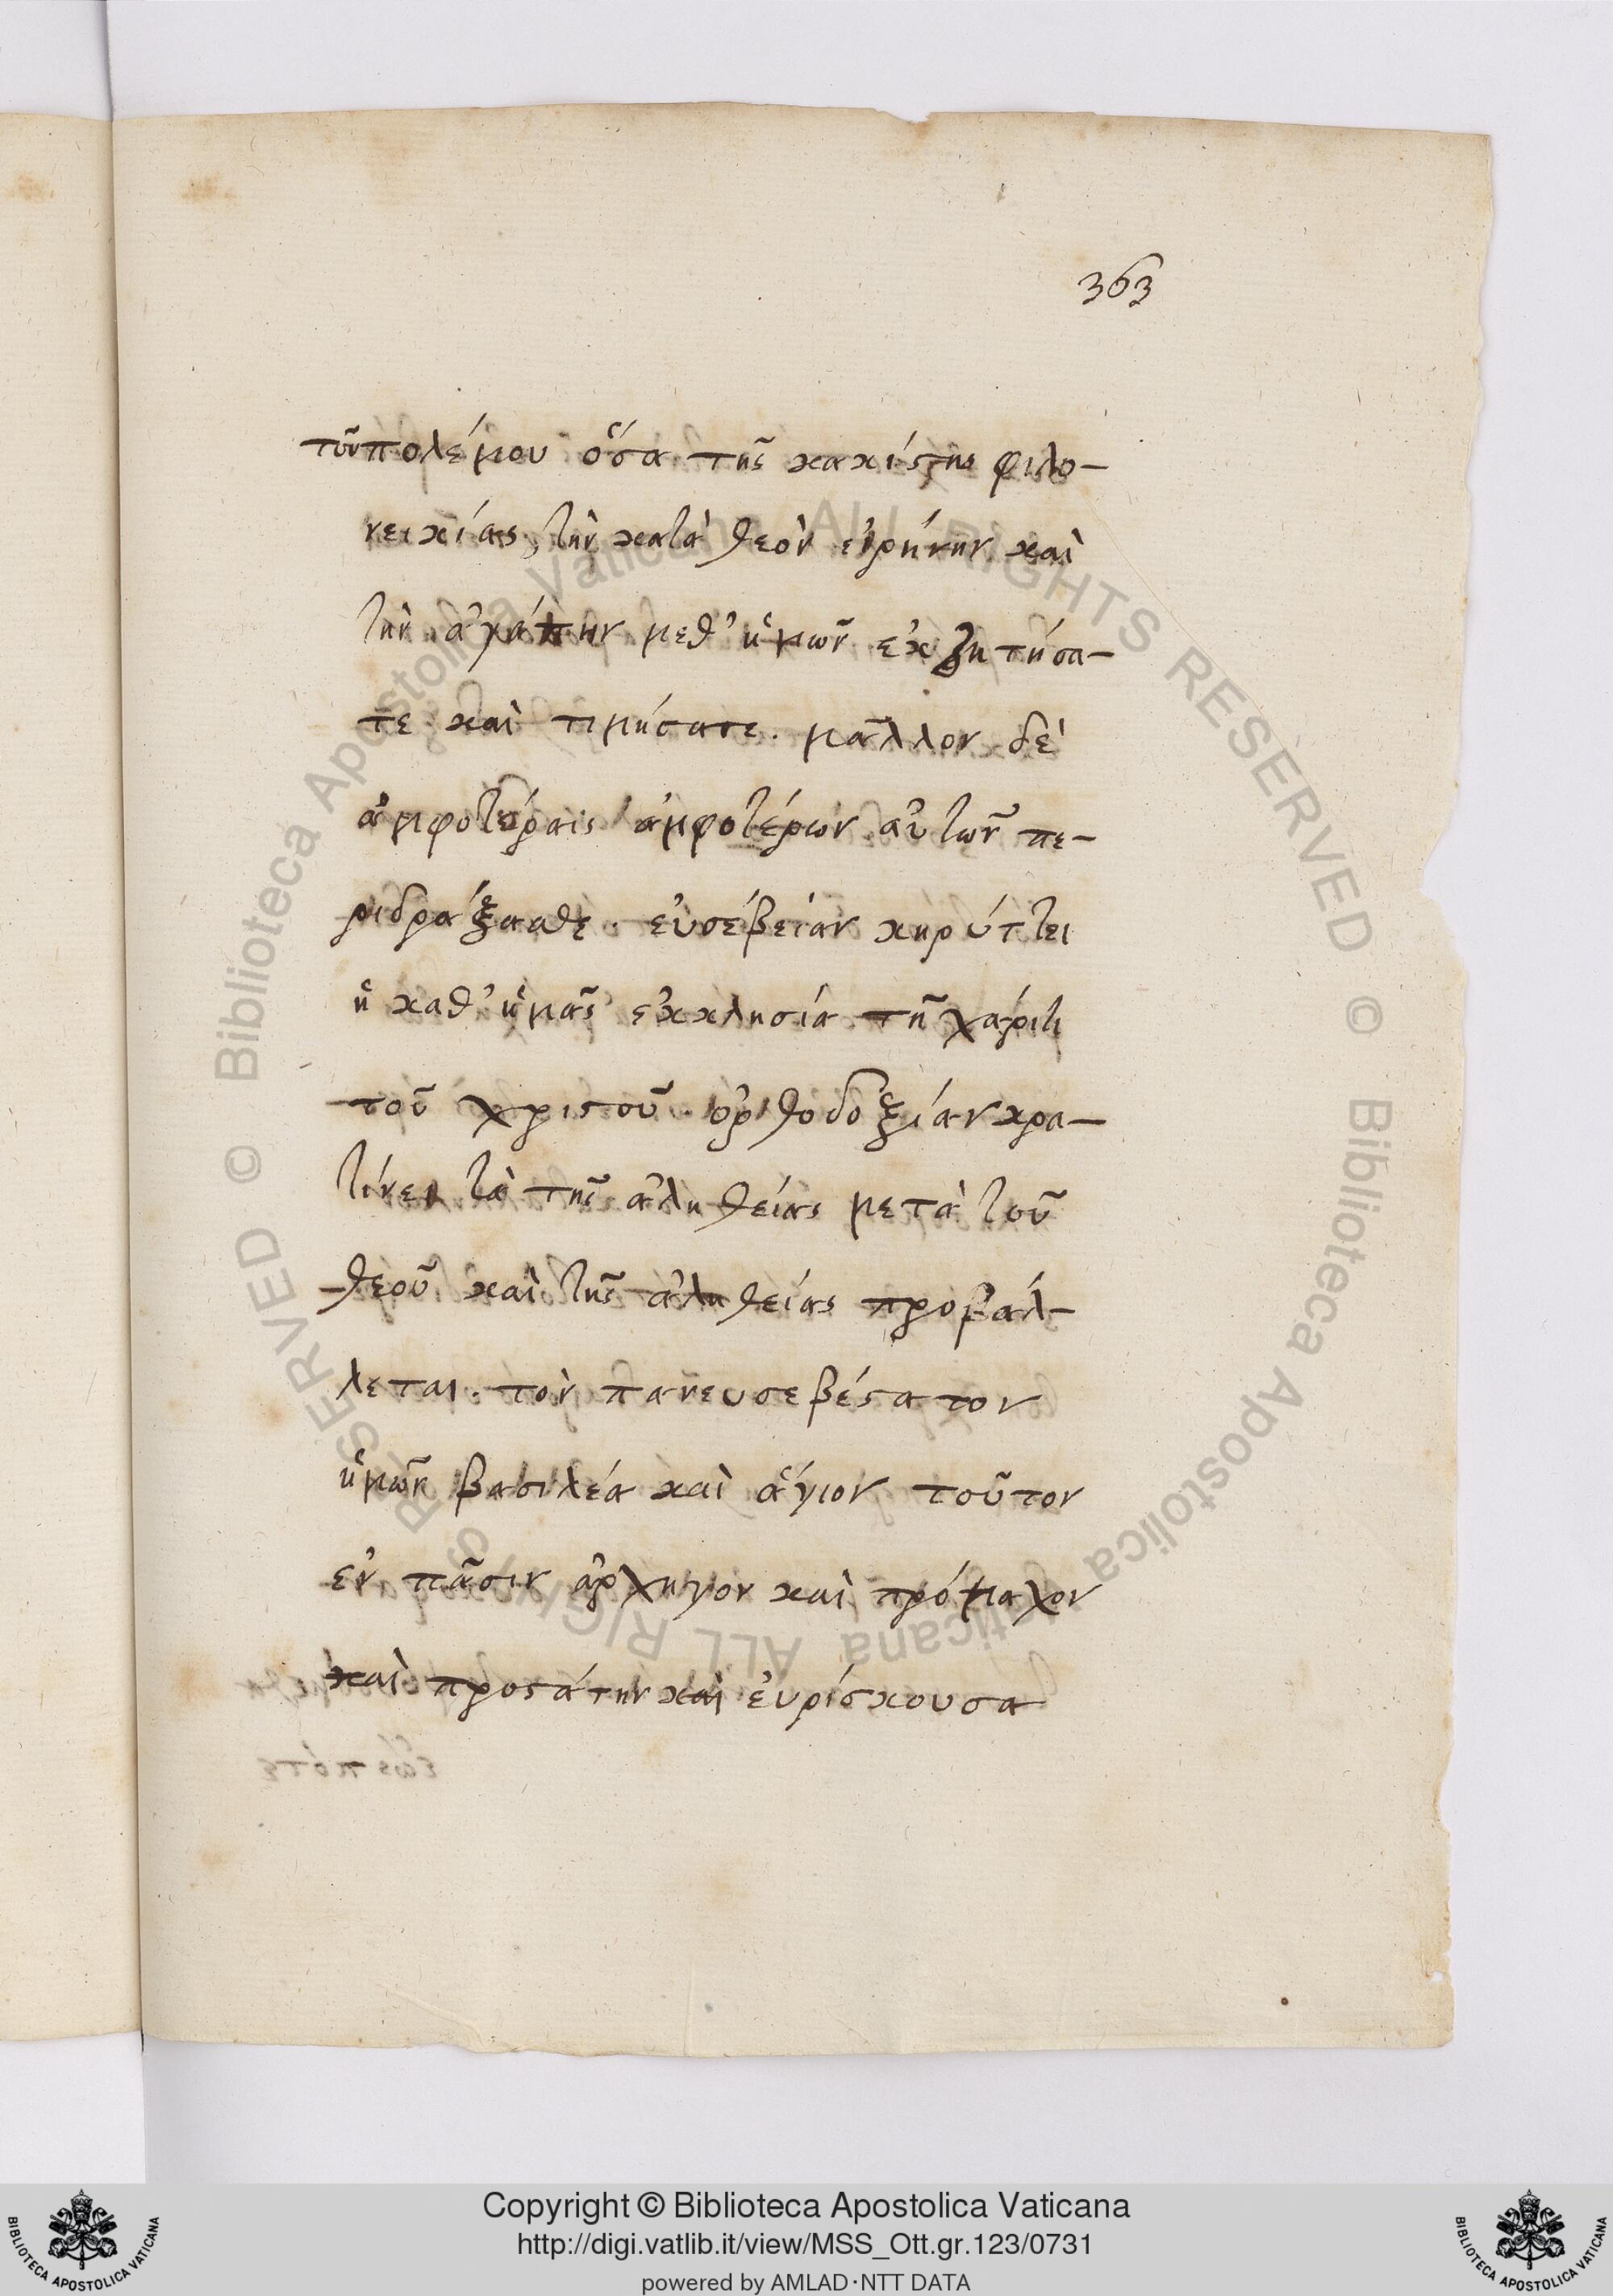 363
τοῦ πολέμου ὅσα τῆς κακίστης φιλο-
νεικίας, τὴν κατὰ θεὸν εἰρήνην καὶ
τὴν ἀγάπην μεθ' ἡμῶν ἐκζητήσα-
τε καὶ τιμήσατε. μᾶλλον δὲ
ἀμφοτέραις ἀμφοτέρων αὐτῶν πε-
ριδράξασθε. εὐσέβειαν κηρύττει
ἡ καθ' ἡμᾶς ἐκκλησία τῇ χάριτι
τοῦ χριστοῦ. ὀρθοδοξίαν κρα-
τύνει τὰ τῆς ἀληθείας μετὰ τοῦ
θεοῦ καὶ τῆς ἀληθείας προβάλ-
λεται. τὸν πανευσεβέστατον
ἡμῶν βασιλέα καὶ ἅγιον τοῦτον
ἐν πᾶσιν ἀρχηγον καὶ πρόμαχον
καὶ προστάτην καὶ ἐυρίσκουσα
Copyright © Biblioteca Apostolica Vaticana
http://digi.vatlib.it/view/MSS_Ott.gr.123/0731
powered by AMLAD·NTT DATA
BIBLIOTECA APOSTOLICA VATICANA
BIBLIOTECA APOSTOLICA VATICANA
© Biblioteca Apostolica Vaticana ALL RIGHTS RESERVED © Biblioteca Apostolica Vaticana ALL RIGHTS RESERVED